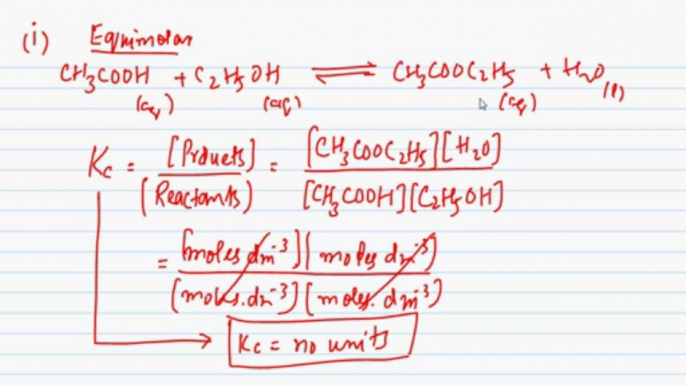 (i) Equimolar
CH3COOH + C2H5OH ⇌ CH3COOC2H5 + H2O
(aq) (aq) (aq) (l)
Kc = [Prducts] / (Reactants) = [CH3COOC2H5][H2O] / [CH3COOH][C2H5OH]
= [moles dm⁻³][moles dm⁻³] / (moles.dm⁻³)(moles.dm⁻³)
Kc = no units